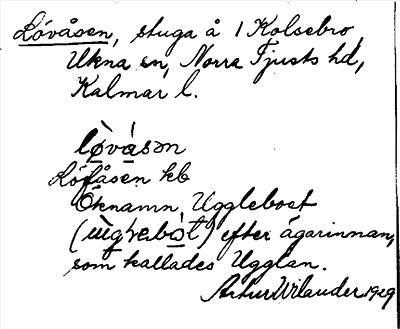 Lövåsen, stuga å 1 Kolsebro,
Ukna sn, Norra Tjusts hd,
Kalmar l.
lø̀vá̀sən
Löfåsen kb
Öknamn, Uggleboet
efter ägarinnan,
som kallades Ugglan.
Artur Wilander 1929